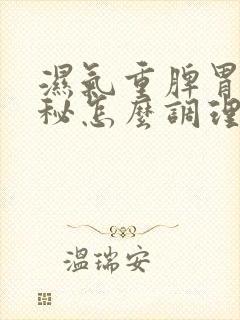 濕氣重脾胃
秘怎麼調理
溫瑞安